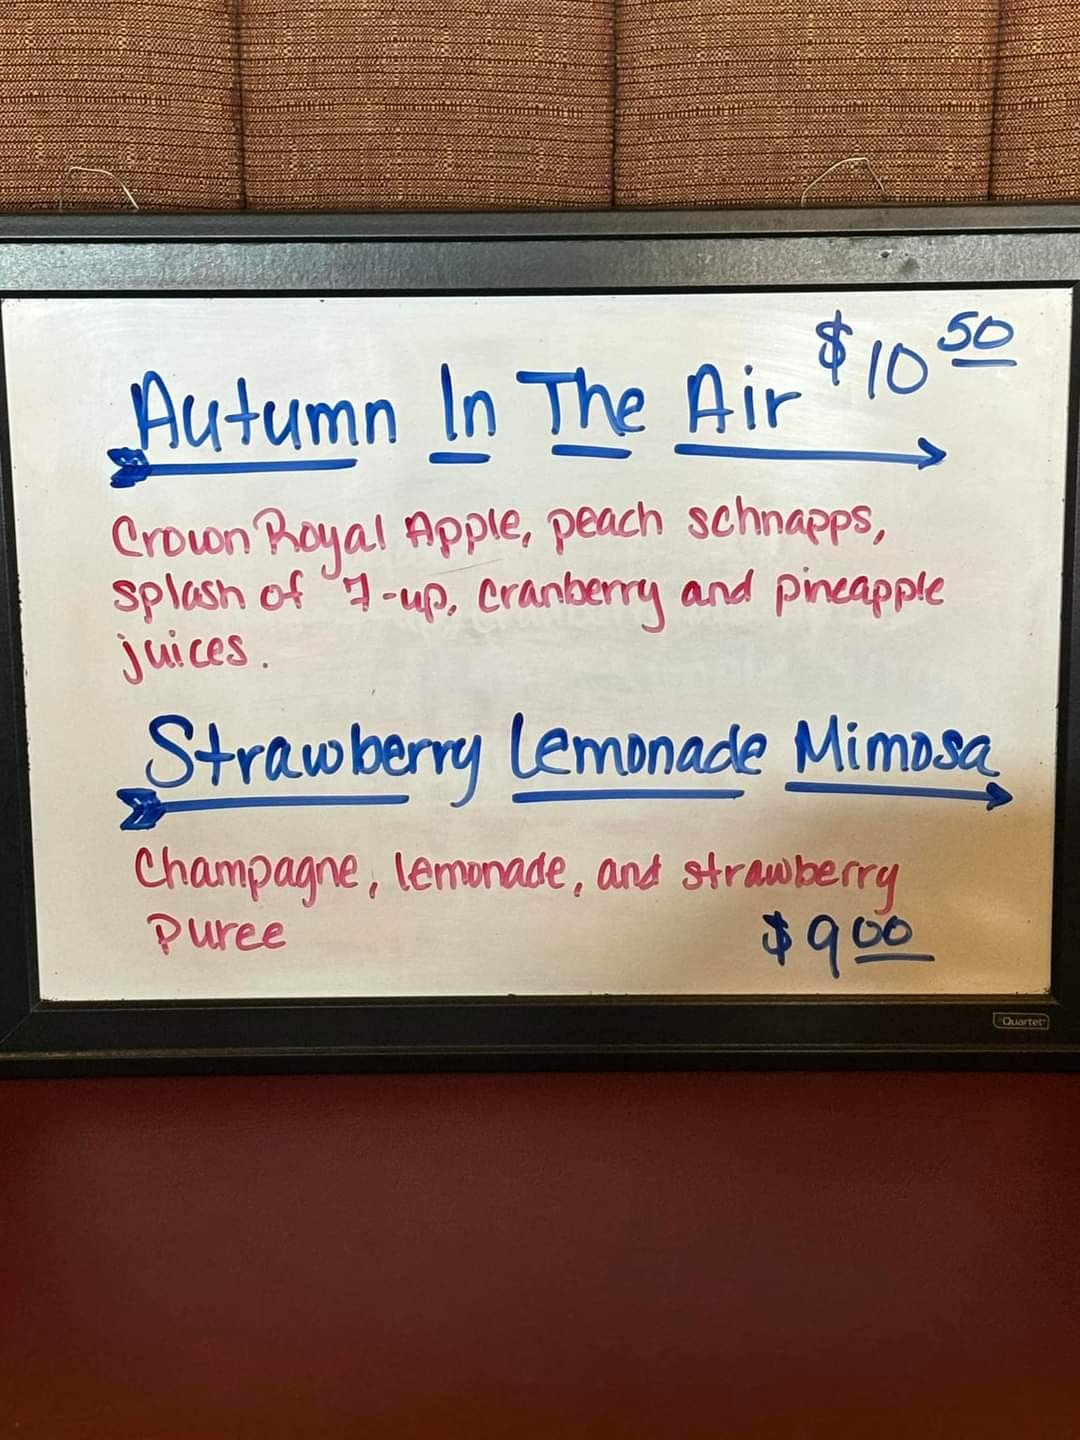 Autumn In The Air $10 50
Crown Royal Apple, peach schnapps,
splash of 7-up, cranberry and pineapple
juices.
Strawberry Lemonade Mimosa
Champagne, lemonade, and strawberry
Puree $9 00
Quartet